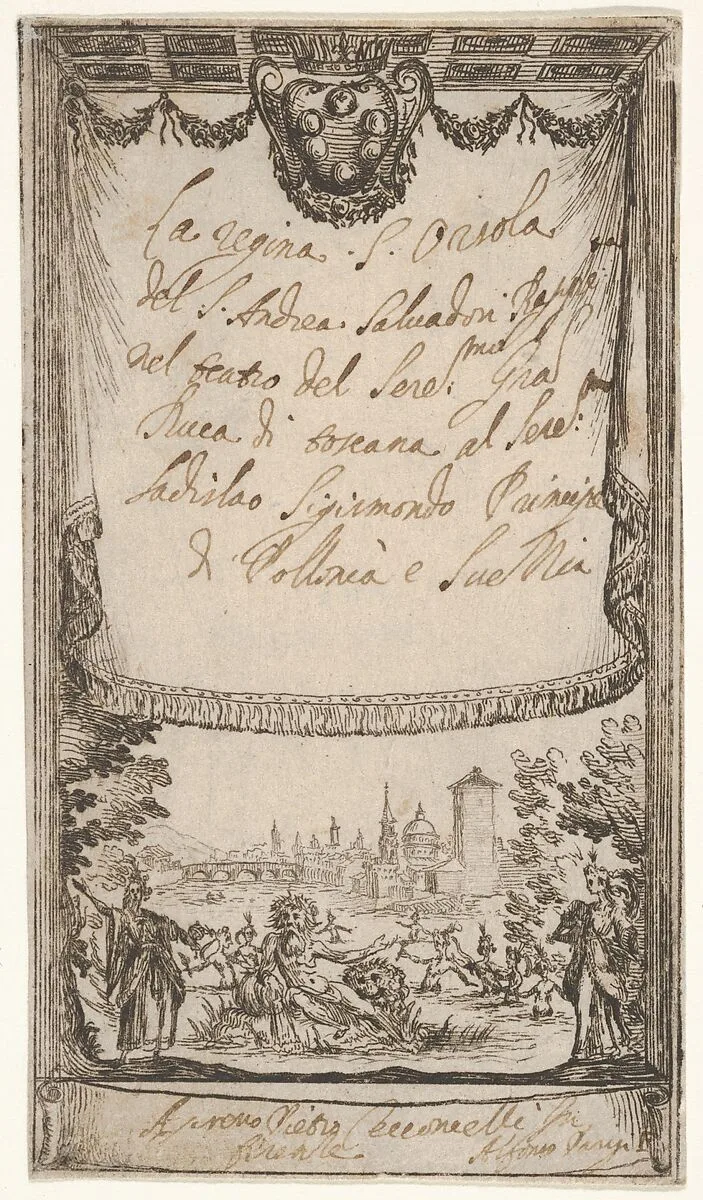 La regina S. Orsola
del S. Andrea Salvadori
nel teatro del Sere.mo Gra
Duca di toscana al Sere.mo
Ladislao Sigismondo Principe
di Pollonia e Suethia
Pietro Cecconcelli
firenze Alfonso Parigi F